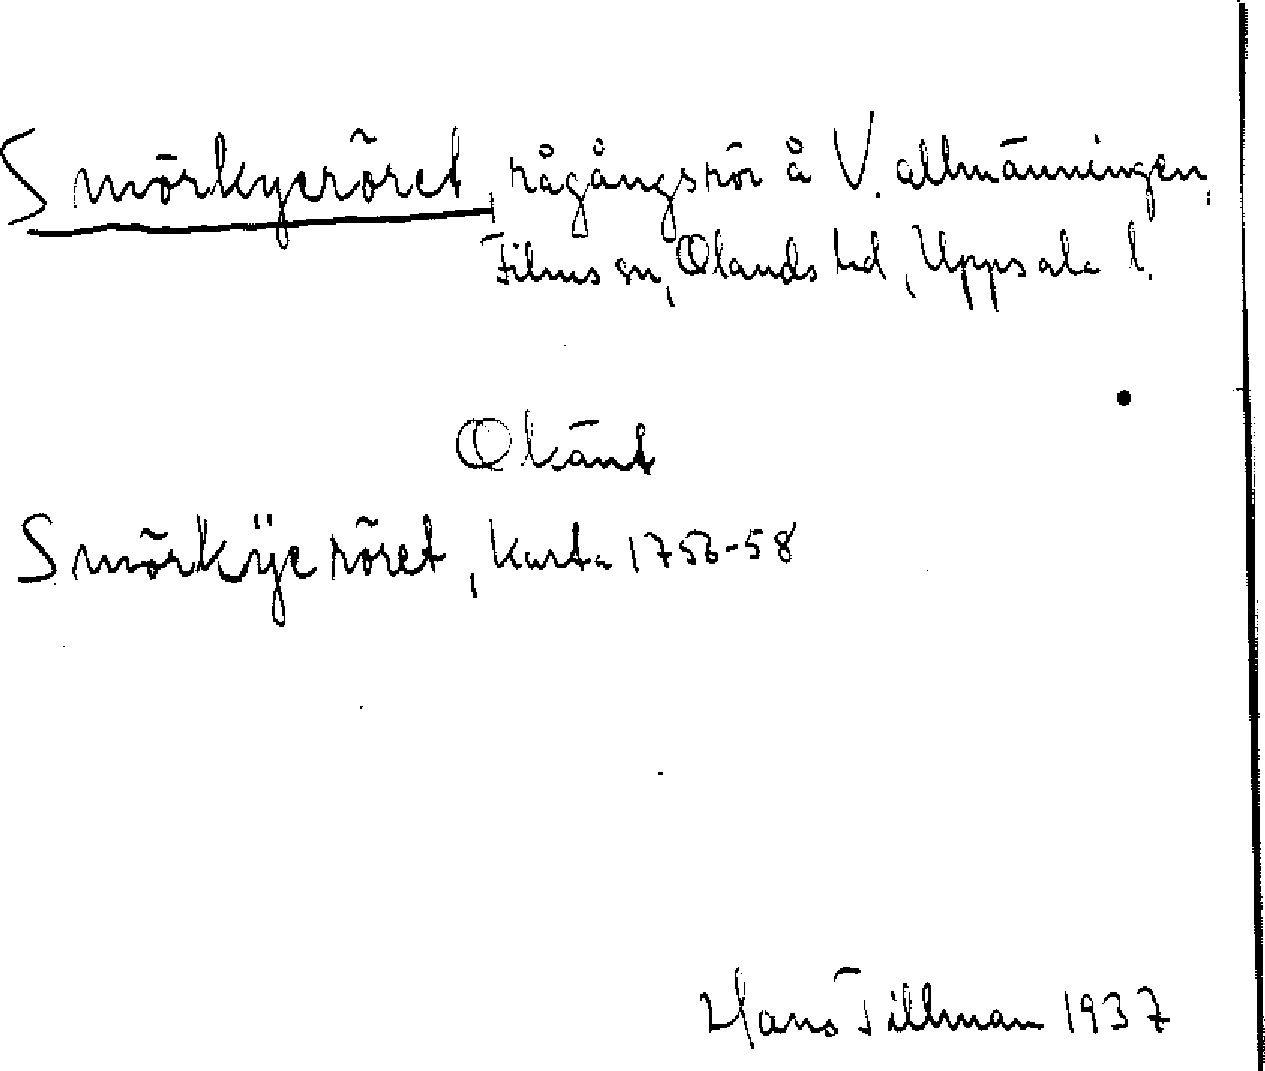 Smörkyeröret, rågångsrör å V. allmänningen,
Films sn, Olands hd, Uppsala l.
Okänt
Smörkÿe röret, Karta 1756-58
Hans Tillman 1937